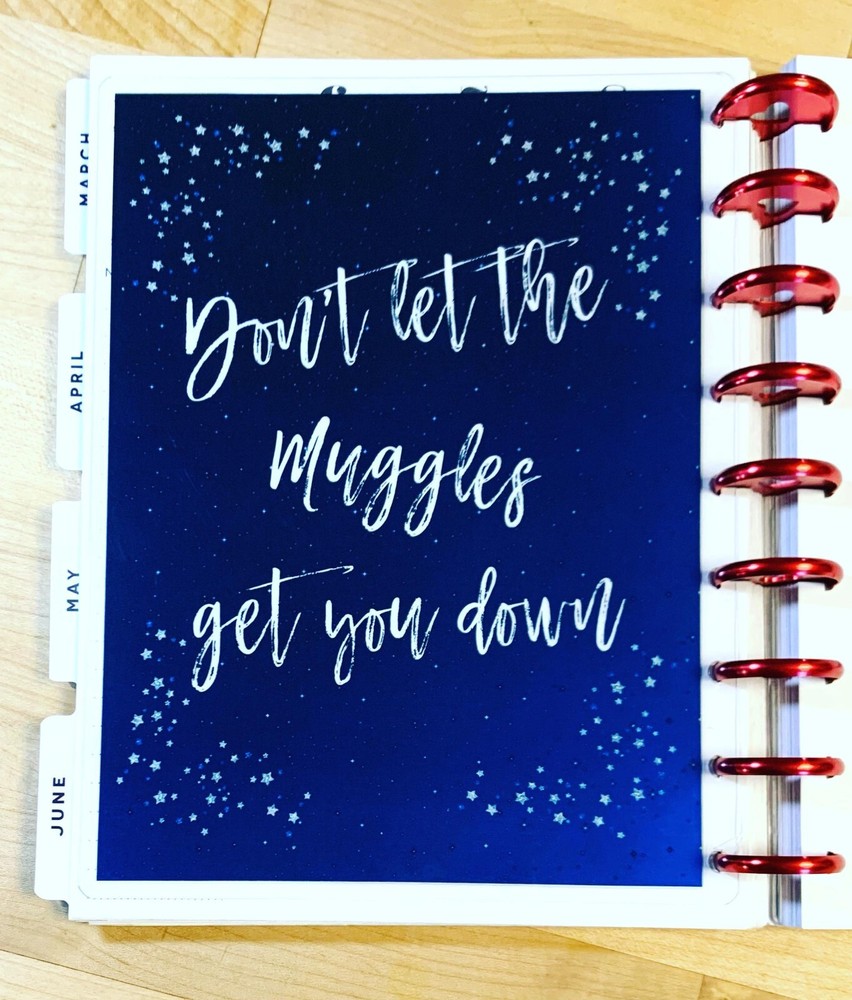 MARCH
APRIL
MAY
JUNE
Don't let the
Muggles
get you down